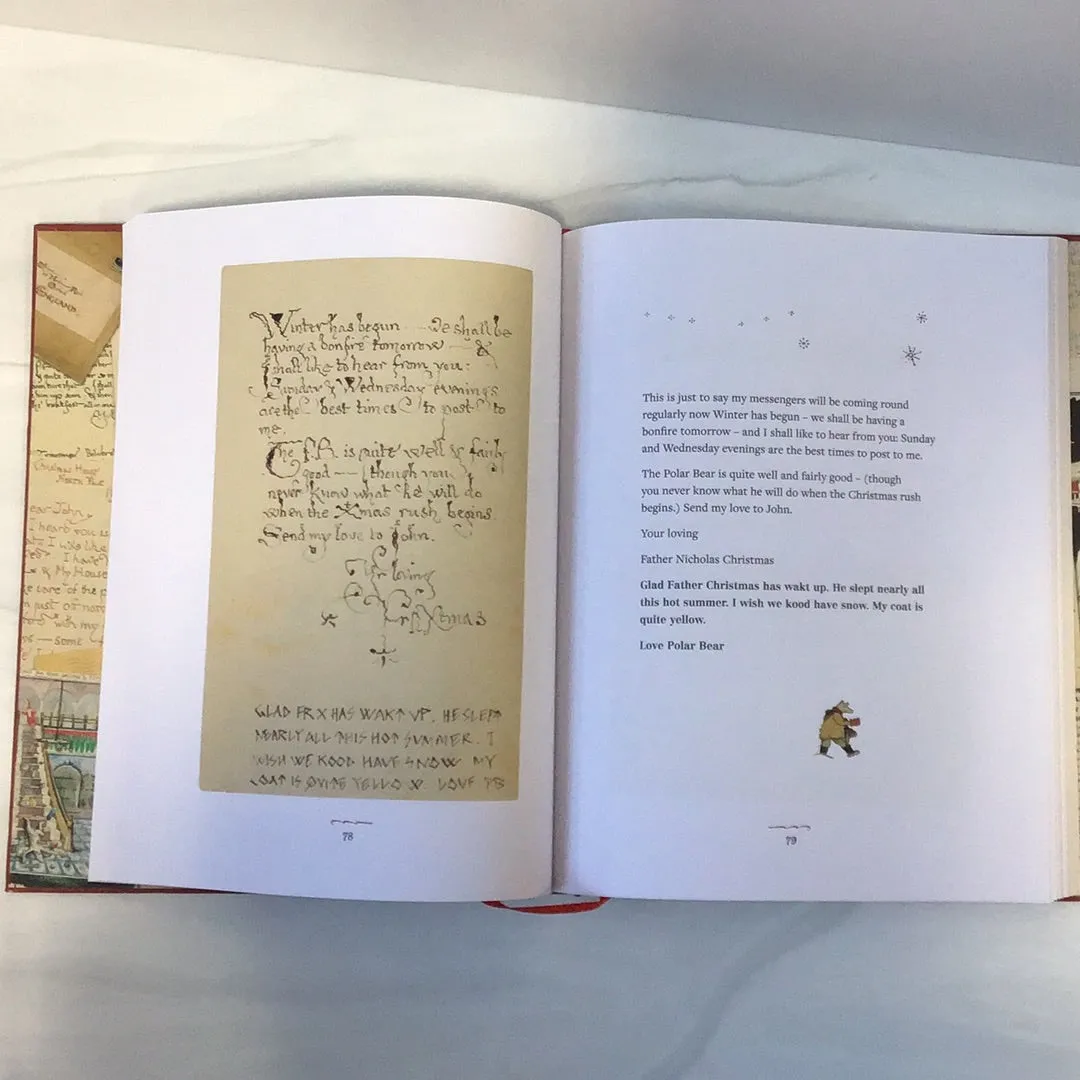 ENGLAND
Christmas House
NORTH POLE
ear John,
I heard you
I have
& My House
— some
Winter has begun — we shall be
having a bonfire tomorrow — &
I shall like to hear from you:
Sunday & Wednesday evenings
are the best times to post to
me.
The P.B. is quite well & fairly
good — (though you
never know what he will do
when the Xmas rush begins.
Send my love to John.
Yr loving
Fr N Xmas
GLAD FR X HAS WAKT UP. HE SLEPT
NEARLY ALL THIS HOT SUMMER. I
WISH WE KOOD HAVE SNOW. MY
COAT IS QUITE YELLOW. LOVE PB
78
This is just to say my messengers will be coming round
regularly now Winter has begun – we shall be having a
bonfire tomorrow – and I shall like to hear from you: Sunday
and Wednesday evenings are the best times to post to me.
The Polar Bear is quite well and fairly good – (though
you never know what he will do when the Christmas rush
begins.) Send my love to John.
Your loving
Father Nicholas Christmas
Glad Father Christmas has wakt up. He slept nearly all
this hot summer. I wish we kood have snow. My coat is
quite yellow.
Love Polar Bear
79